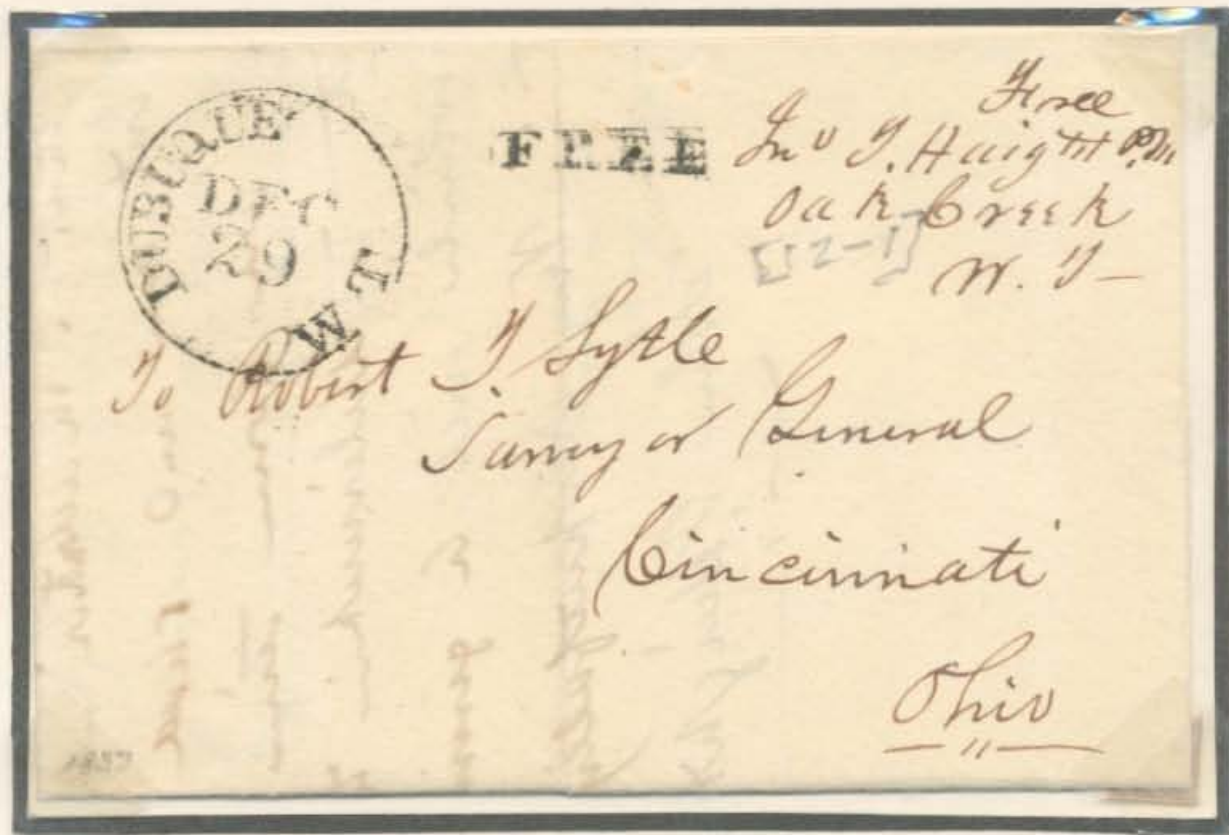 DUBUQUE W T
DEC
29
FREE
Free
Jno T. Haight P.M
Oak Creek
W. T—
[12-1]
To Robert T. Lytle
Surveyor General
Cincinnati
Ohio
1837